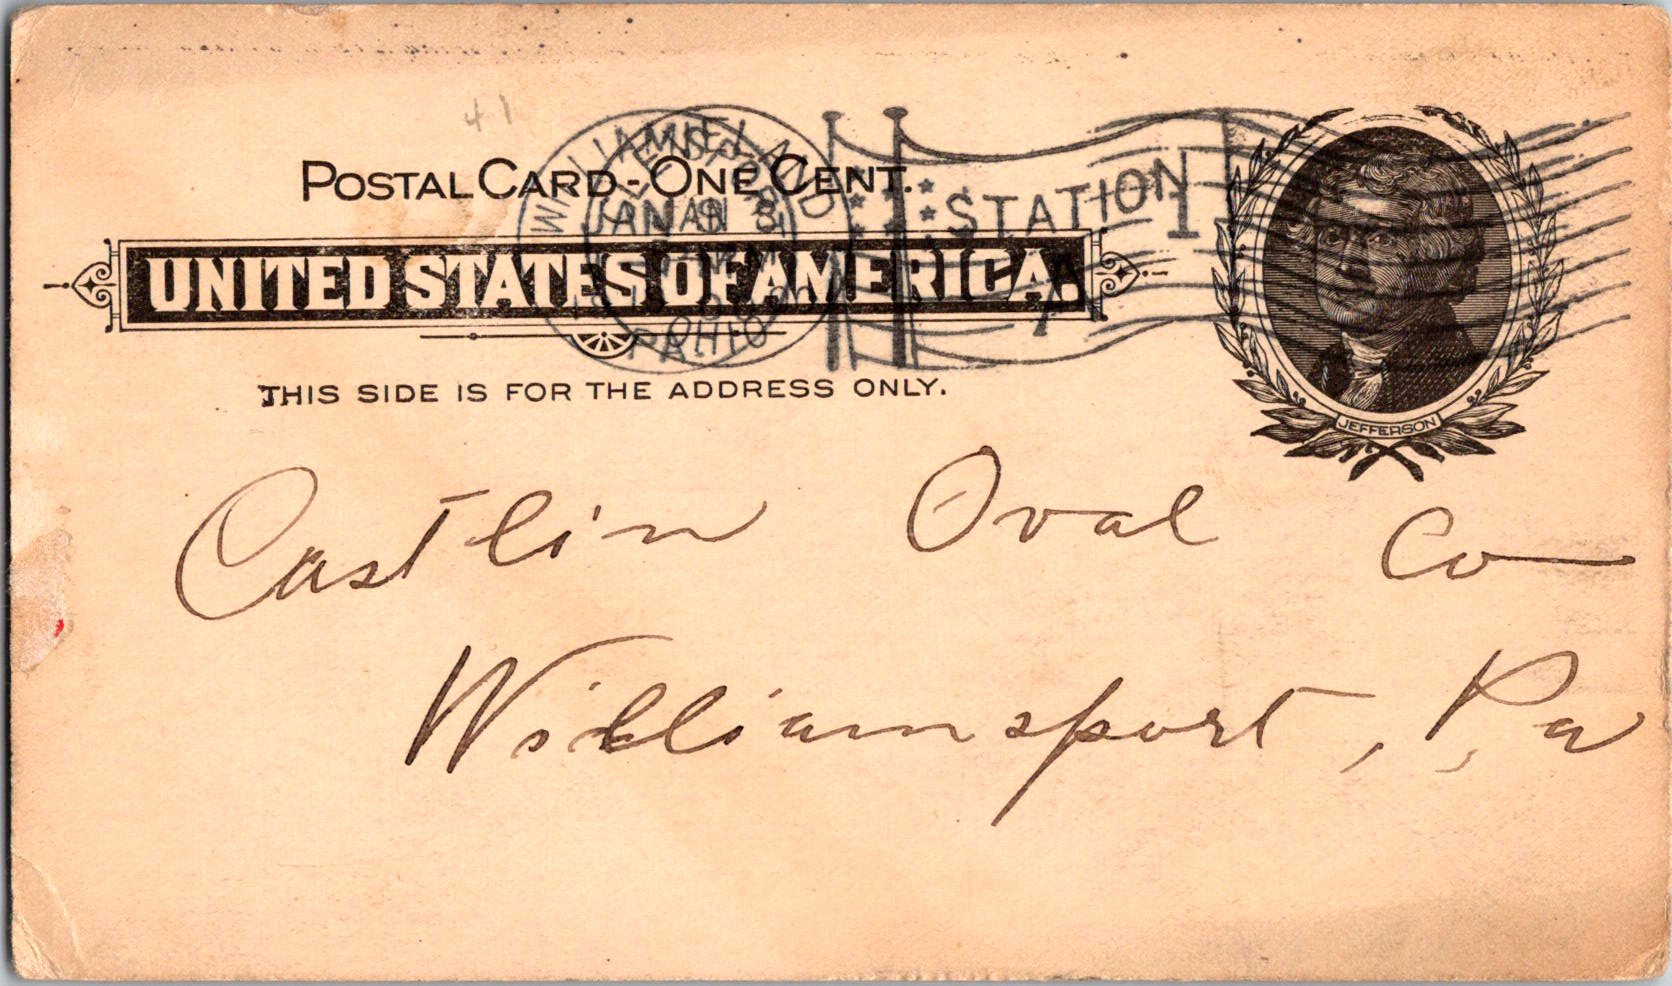 41
POSTAL CARD - ONE CENT.
UNITED STATES OF AMERICA.
THIS SIDE IS FOR THE ADDRESS ONLY.
WILLIAMSPORT
CLEVELAND
JAN 8
JAN
PA.
OHIO
STATION
1
A
JEFFERSON
Castlin Oval Co
Williamsport, Pa